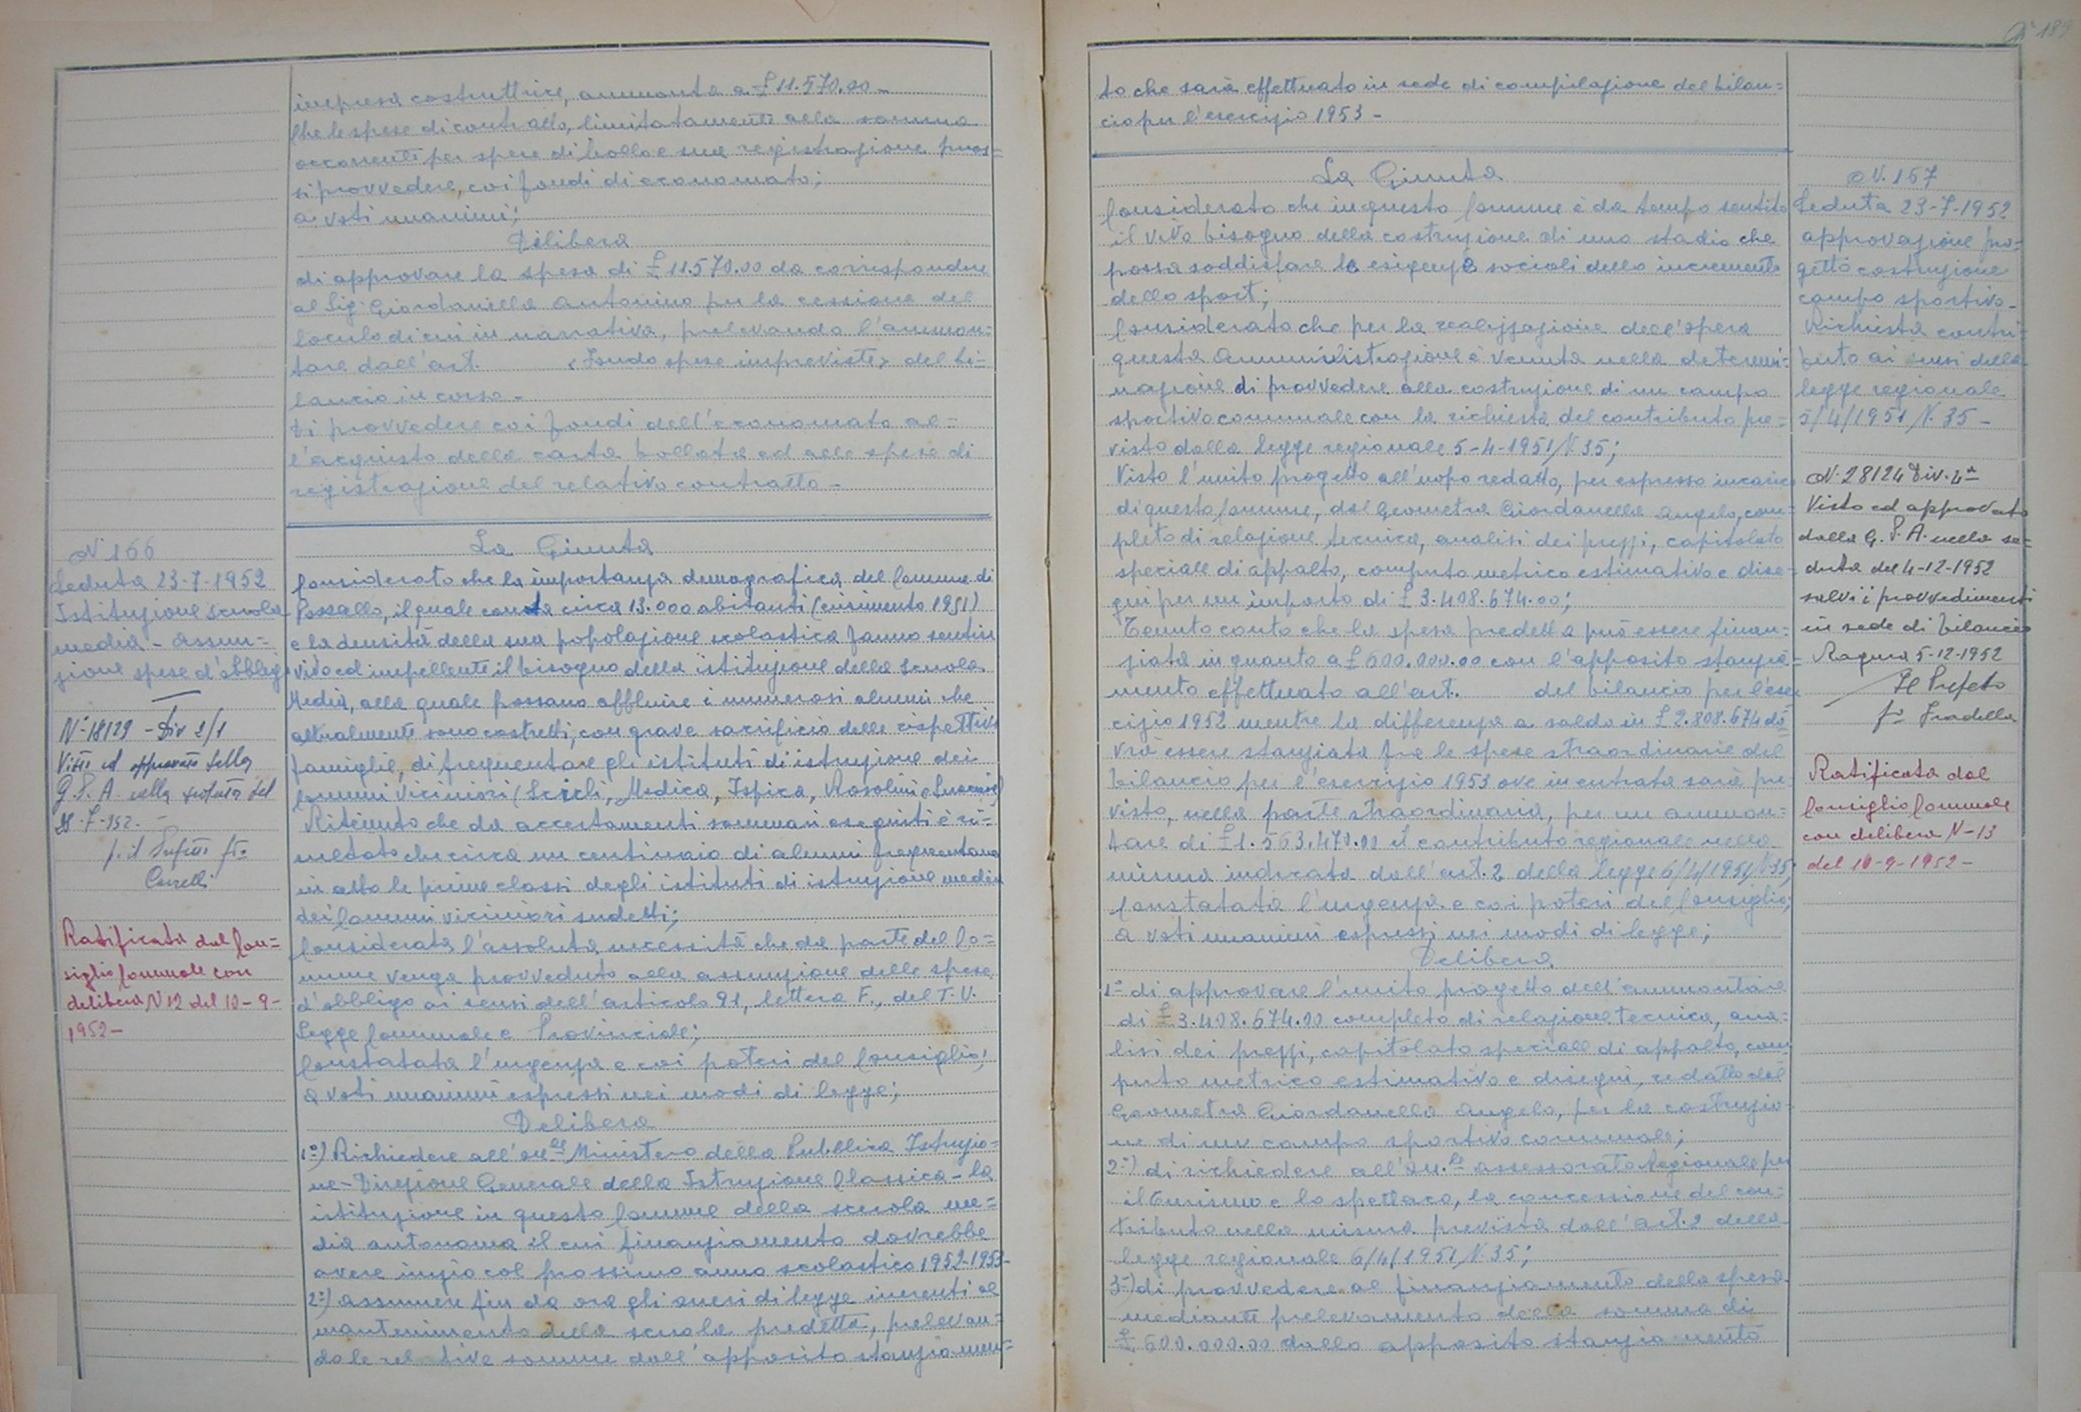 impresa costruttrice, ammonta a £ 11.570.00 -
Che le spese di contratto, limitatamente alla somma
occorrente per spese di bollo e sua registrazione puos=
si provvedere, coi fondi di economato;
a voti unanimi;
Delibera
di approvare la spesa di £ 11.570.00 da corrispondere
al Sig. Giordanella Antonino per la cessione del
loculo di cui in narrativa, prelevando l'ammon=
tare dall'art. (Fondo spese impreviste) del bi=
lancio in corso -
Di provvedere coi fondi dell'economato al=
l'acquisto della carta bollata ed alle spese di
registrazione del relativo contratto -
N 166
Seduta 23-7-1952
Istituzione scuola
media - Assun=
zione spese d'obbligo
N° 18129 - Div 2/1
Visto ed approvato dalla
G.P.A. nella seduta del
28-7-952. -
p. il Prefetto fto
La Giunta
Considerato che la importanza demografica del Comune di
Pozzallo, il quale conta circa 13.000 abitanti (censimento 1951)
e la densità della sua popolazione scolastica fanno sentire
vivo ed impellente il bisogno della istituzione della Scuola
Media, alla quale possano affluire i numerosi alunni che
attualmente sono costretti, con grave sacrificio delle rispettive
famiglie, di frequentare gli istituti di istruzione dei
Comuni viciniori (Scicli, Modica, Ispica, Rosolini e
Ritenuto che da accertamenti sommari eseguiti è ri=
sultato che circa un centinaio di alunni frequentano
in atto le prime classi degli istituti di istruzione media
dei Comuni viciniori sudetti;
Considerata l'assoluta necessità che da parte del Co=
mune venga provveduto alla assunzione delle spese
d'obbligo ai sensi dell'articolo 91, lettera F., del T.U.
Legge Comunale e Provinciale;
Constatata l'urgenza e coi poteri del Consiglio;
a voti unanimi espressi nei modi di legge;
Delibera
Ratificata dal Con=
siglio Comunale con
delibera N 12 del 10-9-
1952-
1°) Richiedere all'On.le Ministero della Pubblica Istruzio=
ne - Direzione Generale della Istruzione Classica - la
istituzione in questo Comune della scuola me=
dia autonoma il cui finanziamento dovrebbe
avere inizio col prossimo anno scolastico 1952-1953-
2°) Assumere fin da ora gli oneri di legge inerenti al
mantenimento della scuola predetta, prelevan=
do le relative somme dall'apposito stanziamen=
N° 189
to che sarà effettuato in sede di compilazione del bilan=
cio per l'esercizio 1953 -
La Giunta
Considerato che in questo Comune è da tempo sentito
il vivo bisogno della costruzione di uno stadio che
possa soddisfare le esigenze sociali dello incremento
dello sport;
Considerato che per la realizzazione dell'opera
questa Amministrazione è venuta nella determi=
nazione di provvedere alla costruzione di un campo
sportivo comunale con la richiesta del contributo pre=
visto dalla legge regionale 5-4-1951, N. 35;
Visto l'unito progetto all'uopo redatto, per espresso incarico
di questo Comune, dal Geometra Giordanella Angelo, com=
pleto di relazione tecnica, analisi dei prezzi, capitolato
speciale di appalto, computo metrico estimativo e dise=
gni per un importo di £ 3.408.674.00;
Tenuto conto che la spesa predetta può essere finan=
ziata in quanto a £ 600.000.00 con l'apposito stanzia=
mento effettuato all'art. del bilancio per l'eser
cizio 1952 mentre la differenza a saldo in £ 2.808.674 do
vrà essere stanziata fra le spese straordinarie del
bilancio per l'esercizio 1953 ove in entrata sarà pre
visto, nella parte straordinaria, per un ammon=
tare di £ 1.563.470.00 il contributo regionale nella
misura indicata dall'art. 2 della legge 6/4/1951, N. 35;
Constatata l'urgenza e coi poteri del Consiglio;
a voti unanimi espressi nei modi di legge;
Delibera
1°- di approvare l'unito progetto dell'ammontare
di £ 3.408.674.00 completo di relazione tecnica, ana=
lisi dei prezzi, capitolato speciale di appalto, com
puto metrico estimativo e disegni, redatto dal
Geometra Giordanella Angelo, per la costruzio=
ne di un campo sportivo comunale;
2°) di richiedere all'On.le Assessorato Regionale per
il Turismo e lo spettaco, la concessione del con=
tributo nella misura prevista dall'art. 2 della
legge regionale 6/4/1951, N. 35;
3°) di provvedere al finanziamento della spesa
mediante prelevamento della somma di
£ 600.000.00 dallo apposito stanziamento
N. 167
Seduta 23-7-1952
approvazione pro=
getto costruzione
campo sportivo -
Richiesta contri=
buto ai sensi della
legge regionale
5/4/1951, N. 35 -
N. 28124 Div. 4a
Visto ed approvato
dalla G.P.A. nella se=
duta del 4-12-1952
salvi i provvedimenti
in sede di bilancio
Ragusa 5-12-1952
Il Prefeto
fto Gradella
Ratificata dal
Consiglio Comunale
con delibera N-13
del 10-9-1952-